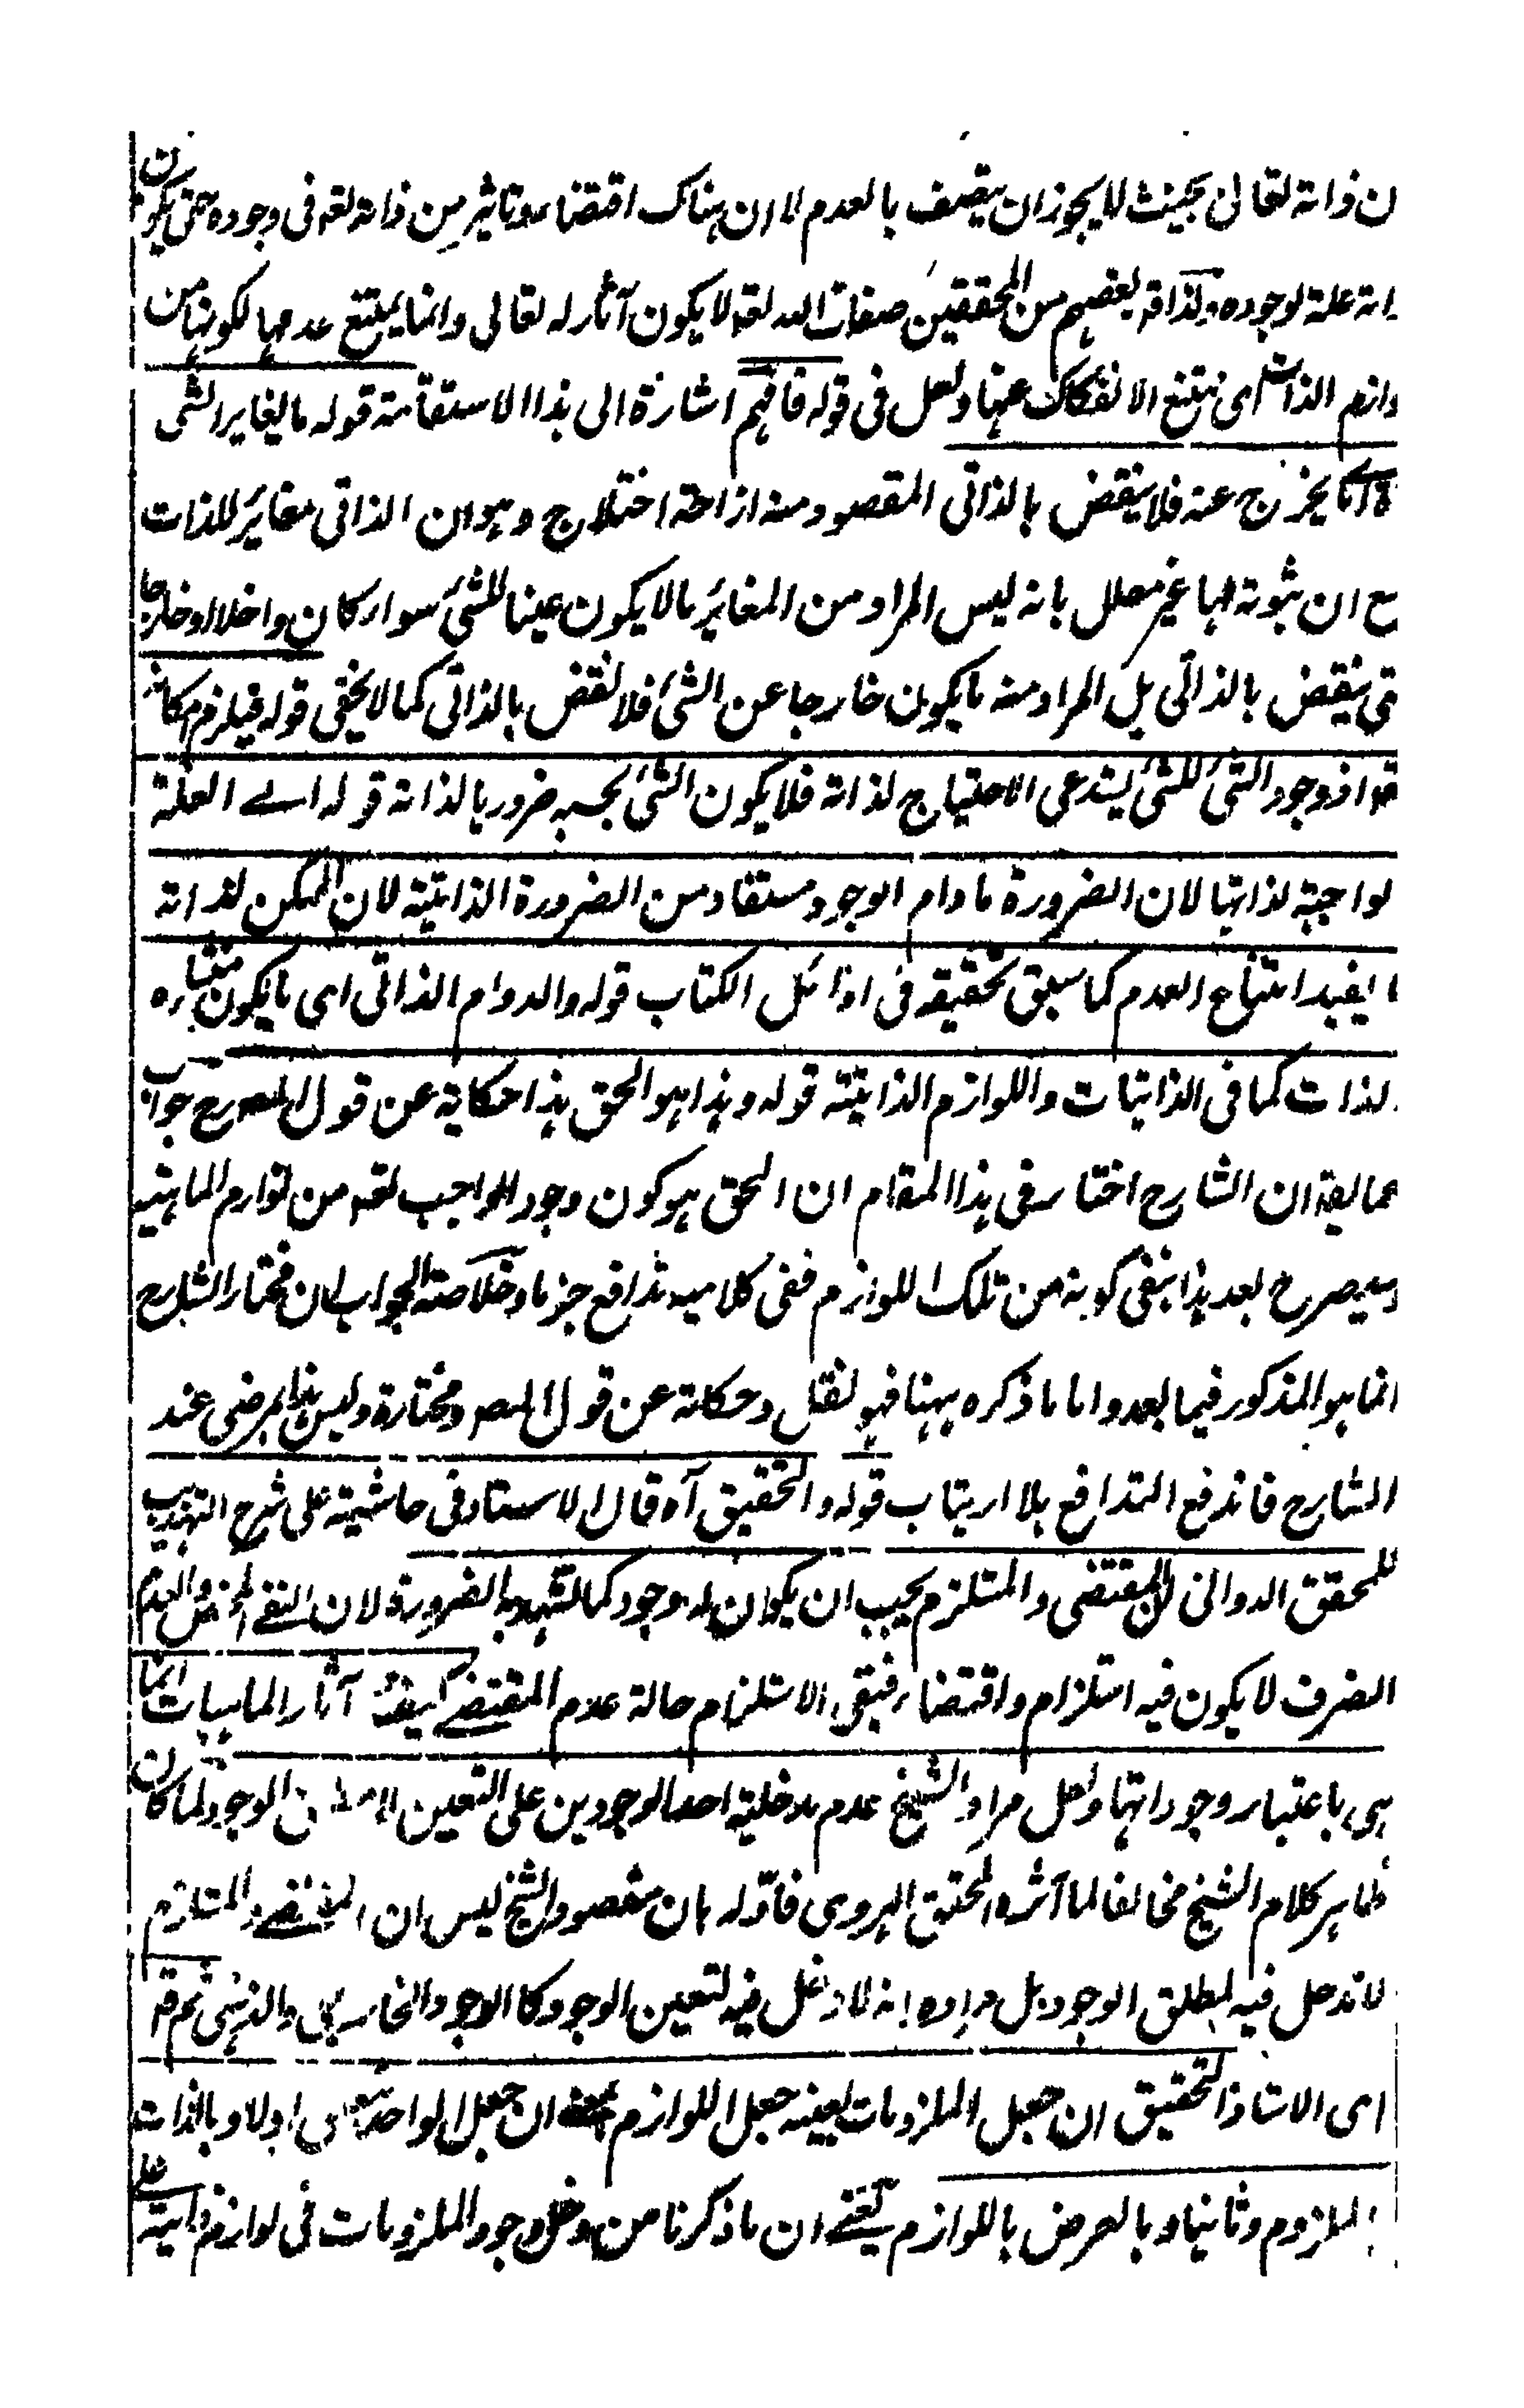 ن ذاته تعالى بحيث لا يجوز ان يتصف بالعدم لا ان هناك اقتضاء وتاثير من ذاته تعه فى وجوده حتى يكون
اته علة لوجوده ولذا قه بعضهم من المحققين صفات الله تعه لا يكون آثار له تعالى وانما يمتنع عدمها لكونها من
وازم الذات اى يمتنع الانفكاك عنها ولعل فى قوله فافهم اشارة الى هذا الاستقامة قوله ما يغاير الشى
يخرج عنه فلا ينقض بالذاتى المقصود منه ازاحة اختلاج وهو ان الذاتى مغاير للذات
مع ان ثبوته لها غير معلل بانه ليس المراد من المغاير ما لا يكون عينا للشئ سواء كان داخلا او خارجا
تى ينقض بالذاتى بل المراد منه ما يكون خارجا عن الشئ فلا نقض بالذاتى كما لا يخفى قوله فيلزم امكانه
قه اذ وجود الشئ للشئ يستدعى الاحتياج لذاته فلا يكون الشئ بحسبه ضروريا لذاته قوله اى العلة
لواجبة لذاتها لان الضرورة ما دام الوجود مستفاد من الضرورة الذاتية لان الممكن لذاته
ا يفيد امتناع العدم كما سبق تحقيقه فى اوائل الكتاب قوله والدوام الذاتى اى ما يكون منشاره
لذات كما فى الذاتيات واللوازم الذاتية قوله وهذا هو الحق هذا حكاية عن قول المصرح جواب
عما يقه ان الشارح اختار فى هذا المقام ان الحق هو كون وجود الواجب تعه من لوازم الماهية
وسيصرح بعد هذا بنفى كونه من تلك اللوازم ففى كلاميه تدافع جزما وخلاصة الجواب ان مختار الشارح
انما هو المذكور فيما بعد واما ما ذكره ههنا فهو نقل وحكاية عن قول المصر ومختاره وليس هذا بمرضى عند
الشارح فاندفع التدافع بلا ارتياب قوله والتحقيق آه قال الاستاد فى حاشيته على شرح التهذيب
للمحقق الدوانى ان المقتضى والمستلزم يجب ان يكون له وجود كما تشهد به الضرورة لان النفى المحض والعدم
الصرف لا يكون فيه استلزام واقتضاء فبقى الاستلزام حالة عدم المقتضى كيف آثار الماهيات انما
هى باعتبار وجوداتها ولعل مراد الشيخ عدم مدخلية احد الوجودين على التعيين لا الوجود لما كان
ظاهر كلام الشيخ مخالفا لما آثره المحقق الهروى فاوله بان مقصود الشيخ ليس ان المقتضى والمستلزم
لا تدخل فيه لمطلق الوجود بل مراده انه لا دخل فيه لتعين الوجود كالوجود الخارجى والذهنى ثم قه
اى الاستاذ التحقيق ان جعل الملزومات بعينه جعل اللوازم ان جعل الواحد اولا وبالذات
الملزوم وثانيا وبالعرض باللوازم يعنى ان ما ذكرنا من دخل وجود الملزومات فى لوازم ذاتية على